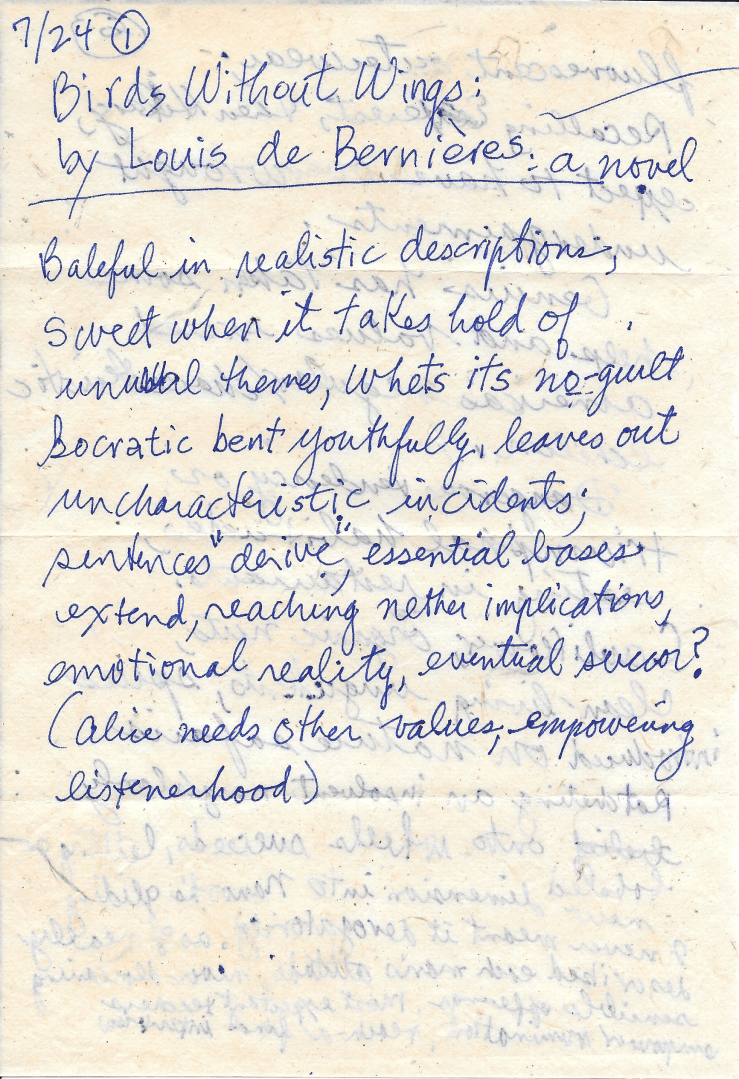 7/24 ①
Birds Without Wings:
by Louis de Bernières: a novel
Baleful in realistic descriptions,
sweet when it takes hold of
unusual themes, whets its no-guilt
Socratic bent youthfully, leaves out
uncharacteristic incidents;
sentences "derive", essential bases
extend, reaching nether implications,
emotional reality, eventual succor?
(alice needs other values, empowering
listenerhood)